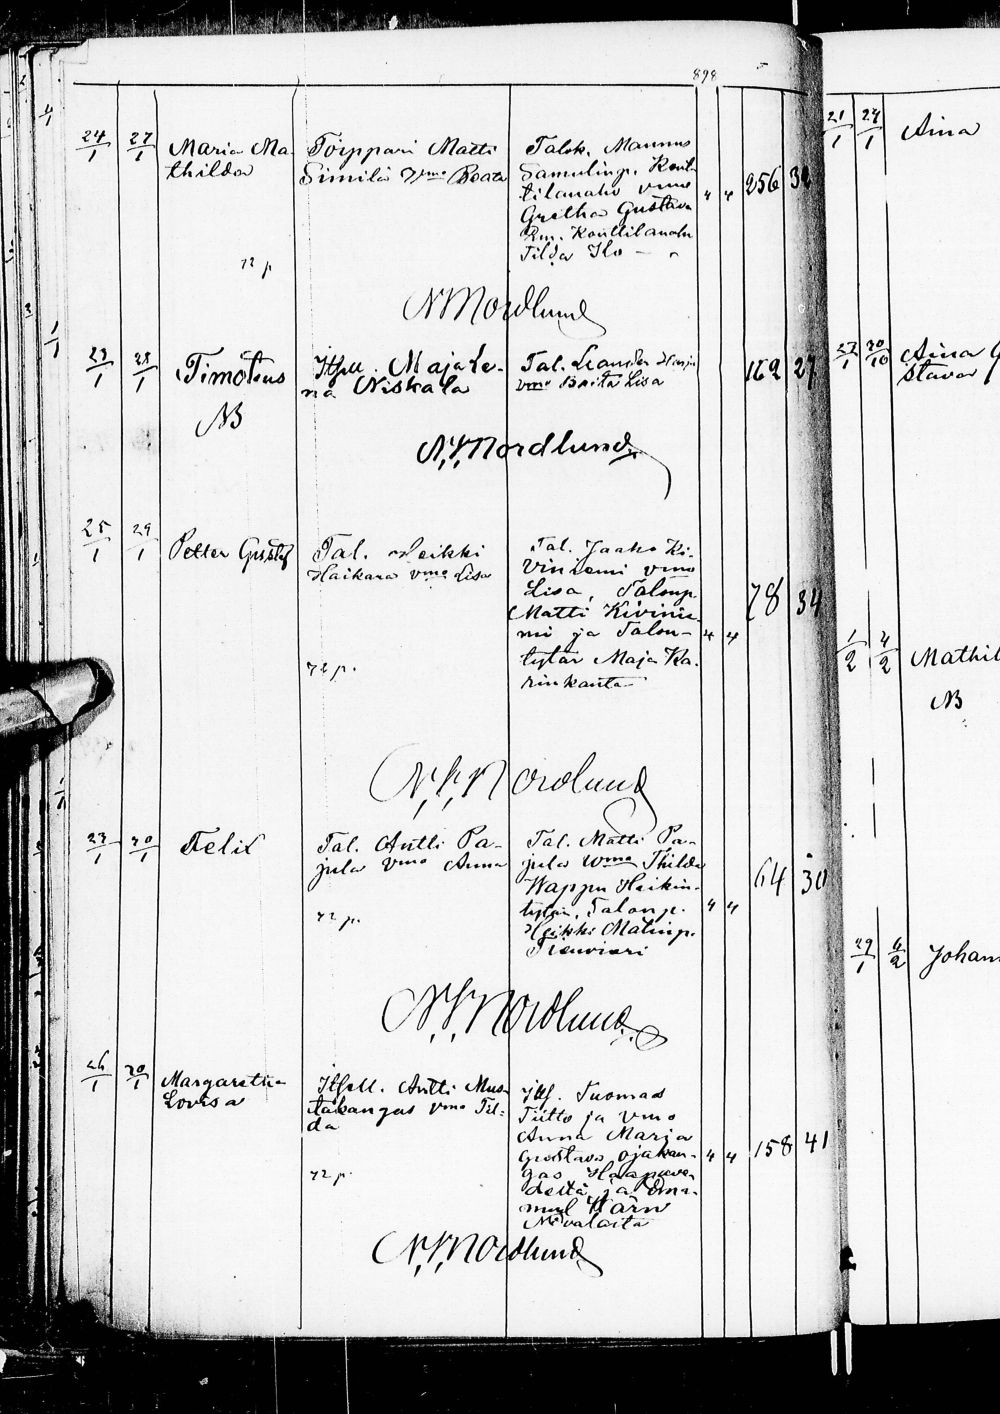 898
24/1 27/1 Maria Ma-
thilda
Torppari Matti
Similä Vmo Beata
Talok. Mannus
Samulinp. Kout-
tilanaho vmo
Gretha Gustava
Rm. Kouttilanaho
Tilda Ilo
" " 256 32
72 p.
N Nordlund
23/1 28/1 Timoteus
NB
Itsell. Maja Le-
na Niskala
Tal. Leander Harju
vmo Brita Lisa
162 27
N.F. Nordlund
25/1 29/1 Petter Gustaf
Tal. Heikki
Haikara vmo Lisa
Tal. Jaako Ki-
viniemi vmo
Lisa, Talonp.
Matti Kivinie-
mi ja Talon-
tytär Maja Ka-
rinkanta
" " 78 34
72 p.
N.F. Nordlund
23/1 30/1 Felix
Tal. Antti Pa-
jula Vmo Anna
Tal. Matti Pa-
jula Vmo Thilda
Wappu Heikin-
tytär, Talonp.
Heikki Matinp.
" " 64 30
72 p.
N.F. Nordlund
26/1 30/1 Margaretha
Lovisa
Itsell. Antti Mus-
takangas vmo Til-
da
Its. Tuomas
Tiitto ja Vmo
Anna Marja
Gustava Ojakan-
gas Haapave-
deltä ja Ema-
nuel Härn
Nivalasta
" " 158 41
72 p.
N.F. Nordlund
21/1 24/1 Aina
27/1 30/10 Aina G
stava
1/2 4/2 Mathil
NB
29/1 6/2 Johan